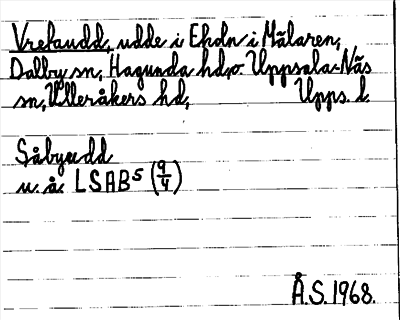 Vrefaudd, udde i Ekoln i Mälaren,
Dalby sn, Hagunda hd, o. Uppsala-Näs
sn, Ulleråkers hd, Upps. l.
Såbyudd
u. å. LSAB⁵ (9/4)
Å.S. 1968.